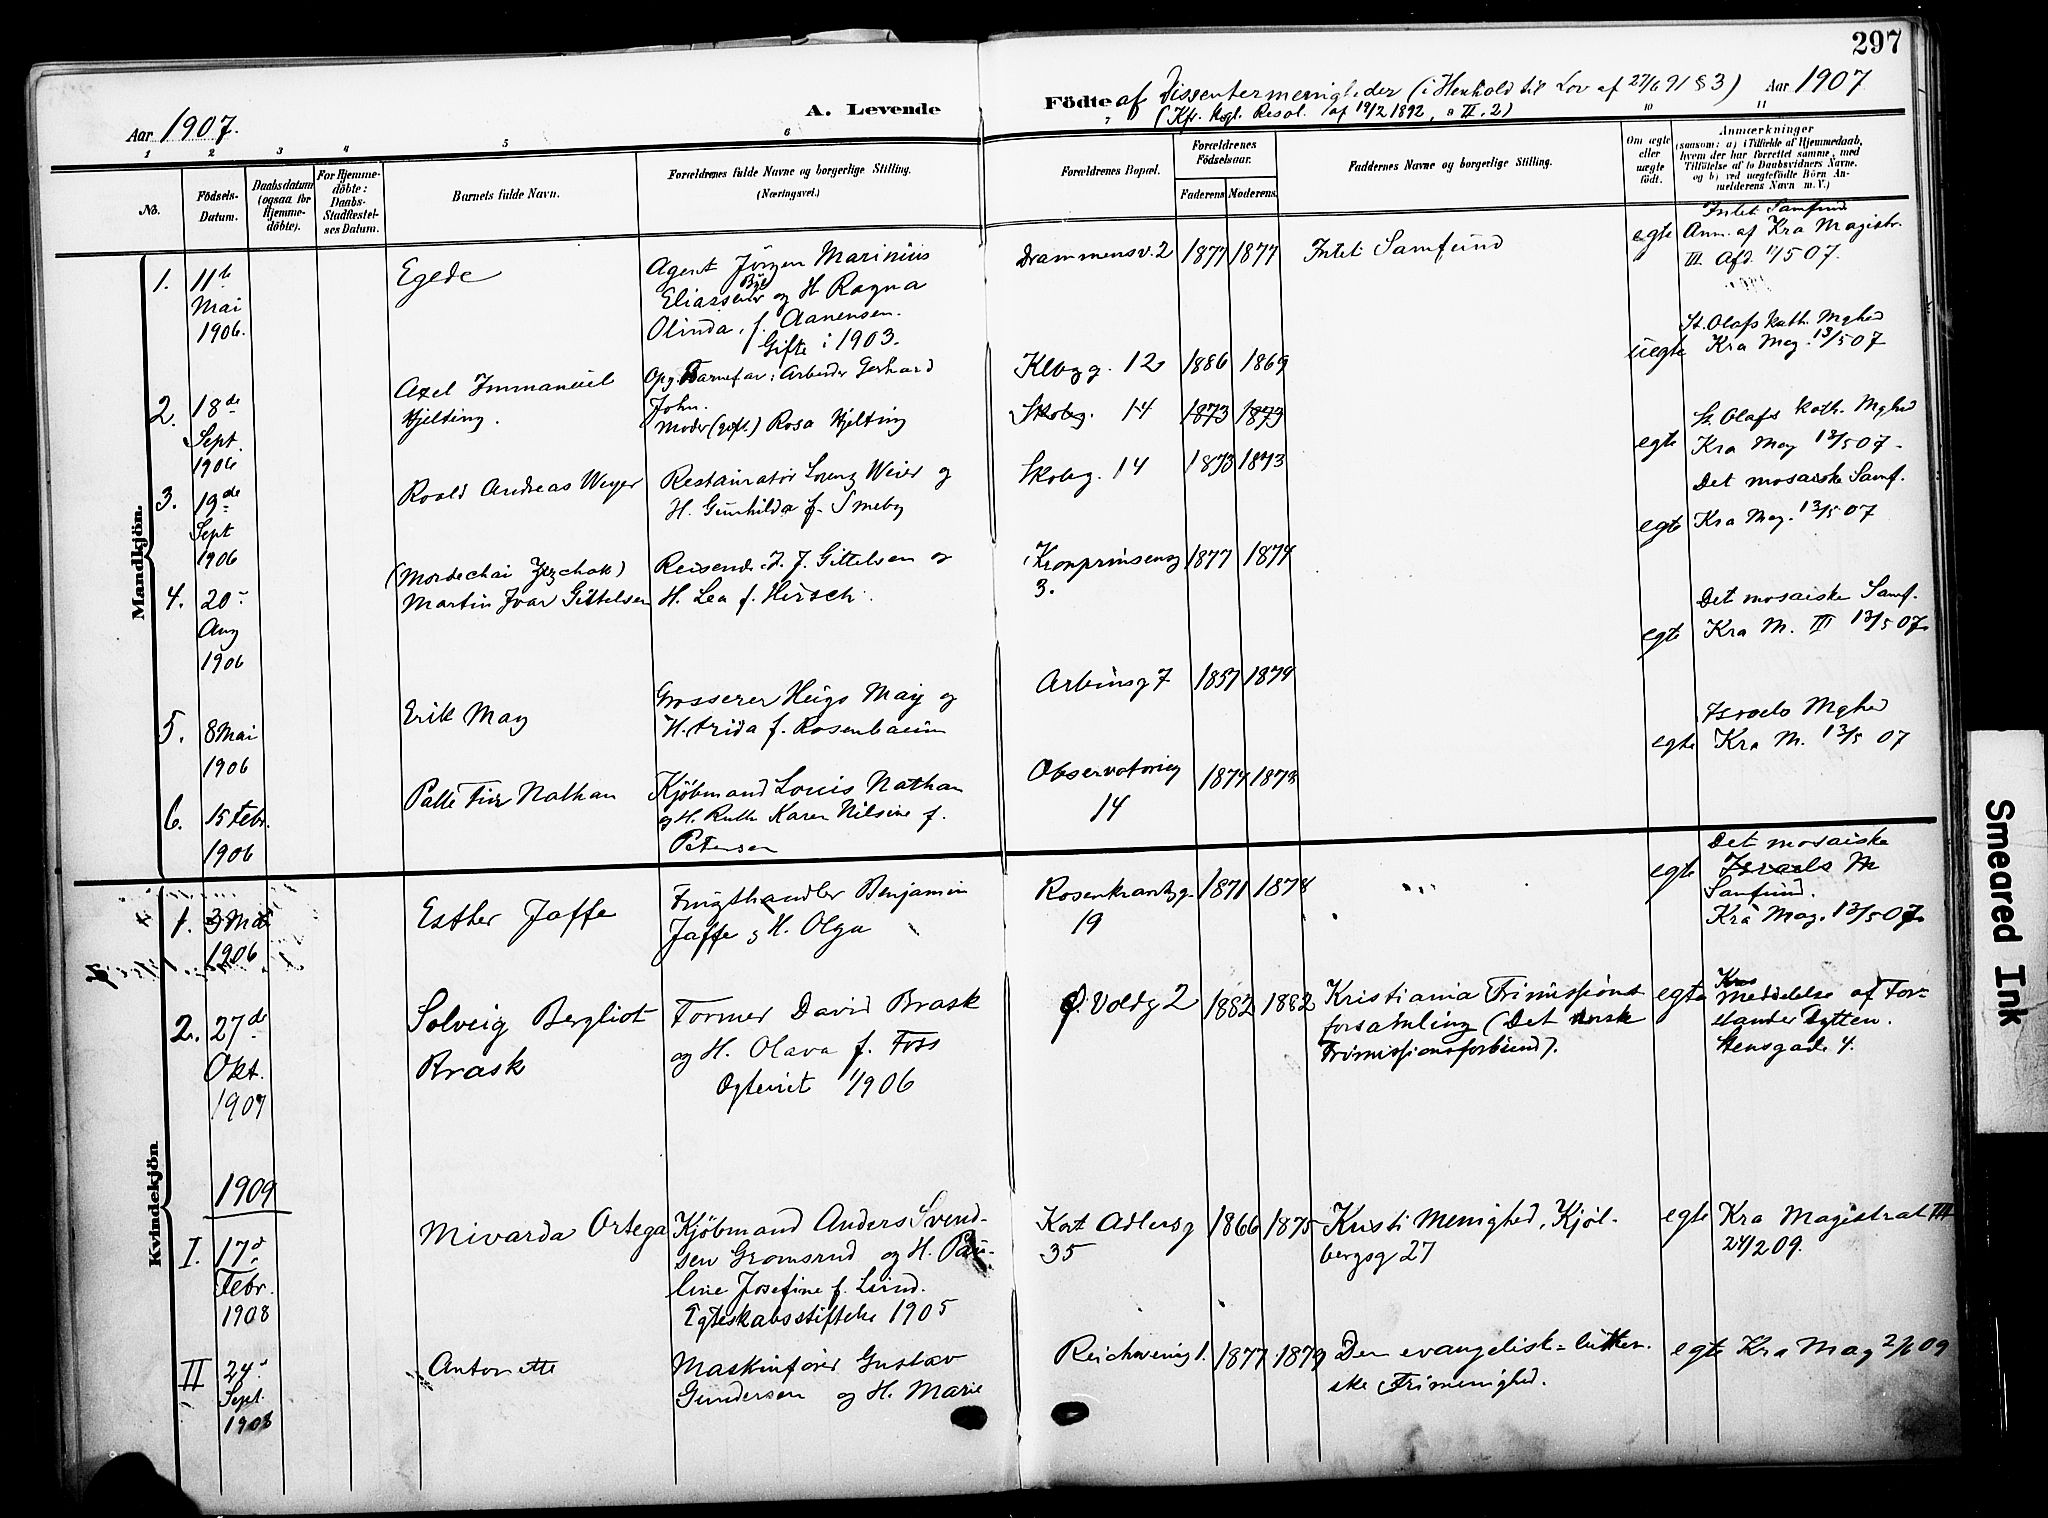 297
Aar 1907.
A. Levende
Födte af Dissentermenigheder (i Henhold til Lov af 27/6 91 § 3) Aar 1907
(Kfr. Kgl. Resol. af 19/2 1892, II. 2)
1 2 3 4 5 6 7 10 11
No.
Födsels-
Datum.
Daabsdatum
(ogsaa for
Hjemme-
döbte).
For Hjemme-
döbte:
Daabs-
Stadfæstel-
ses Datum.
Barnets fulde Navn.
Forældrenes fulde Navne og borgerlige Stilling.
(Næringsvei.)
Forældrenes Bopæl.
Forældrenes
Födselsaar.
Faderens Moderens.
Faddernes Navne og borgerlige Stilling.
Om ægte
eller
uægte
födt.
Anmærkninger
(saasom: a) i Tilfælde af Hjemmedaab,
hvem der har forrettet samme, med
Tilföielse af to Daabsvidners Navne.
og b) ved uægtefödte Börn An-
melderens Navn m. V.)
Mandkjön.
1. 11te
Mai
1906.
Egede
Agent Jörgen Marinius
Bye
Eliassen og H. Ragna
Olinda, f. Aanensen.
Gifte i 1903.
Drammensv. 2 1877 1877 Intet Samfund egte
Intet Samfund
Anm. af Kra Magistr.
III. Afd. 11/5 07.
2. 18de
Sept.
1906
Axel Immanuel
Hjelting.
Opg. Barnefar: Arbeider Gerhard
John.
Moder (gift.) Rosa Hjelting
12 1886 1869 uegte
St. Olafs kath. Mghed
Kra Mag. 13/5 07
Skobg. 14 1873 1873
3. 19de
Sept
1906
Roald Andreas Weyer
Restauratör Lorenz Weier og
H. Gunhilda f. Smeby
Skobg. 14 1873 1873 egte
St. Olafs kath. Mghed
Kra Mag 13/5 07.
4. 20-
Aug
1906
(Mordechai Jezchak)
Martin Ivar Gittelsen
Reisende I. J. Gittelsen og
H. Lea f. Hirsch.
Kronprinsensg
3.
1877 1874 egte
Det mosaiske Samf.
Kra Mag. 13/5 07
5. 8 Mai
1906
Erik May
Grosserer Hugo May og
H. Frida f. Rosenbaum
Arbinsg 7 1857 1879 egte
Det mosaiske Samf.
Kra M. III 13/5 07.
6. 15 Febr.
1906
Palle Finn Nathan
Kjöbmand Louis Nathan
og H. Ruth Karen Nilsine f.
Petersen
Observatorieg
14
1877 1873 egte
Israels Mghed
Kra M. 13/5 07
Kvindekjön
1. 3 Mai
1906
Esther Jaffe
Frugthandler Benjamin
Jaffe og H. Olga
Rosenkrantzg.
19
1871 1878 egte
Det mosaiske
Israels M
Samfund.
Kra Mag. 13/5 07.
2. 27de
Okt.
1907
Solveig Bergliot
Brask
Former David Brask
og H. Olava f. Foss
Ogteviet 1906
Ø. Voldg 2 1882 1882
Kristiania Frimissions
forsamling (Det norske
Frimissionsforbund).
egte
Meddelelse af For-
stander Dytten.
Stensgade 4.
1909
I. 17d
Febr.
1908
Mivarda Ortega
Kjöbmand Anders Svend-
sen Gromsrud og H. Pau-
line Josefine f. Lund.
Egteskabsstiftelse 1905
Kort Adlersg
35
1866 1875
Kristi Menighed, Kjöl-
bergsg 27
egte
Kra Magistrat III
24/2 09.
II 24-
Sept.
1908
Antonette
Maskinförer Gustav
Gundersen og H. Marie
Reichweing 1. 1877 1879
Den evangelisk-luther-
ske Frimenighed.
egte Kra Mag 2/6 09
Smeared Ink